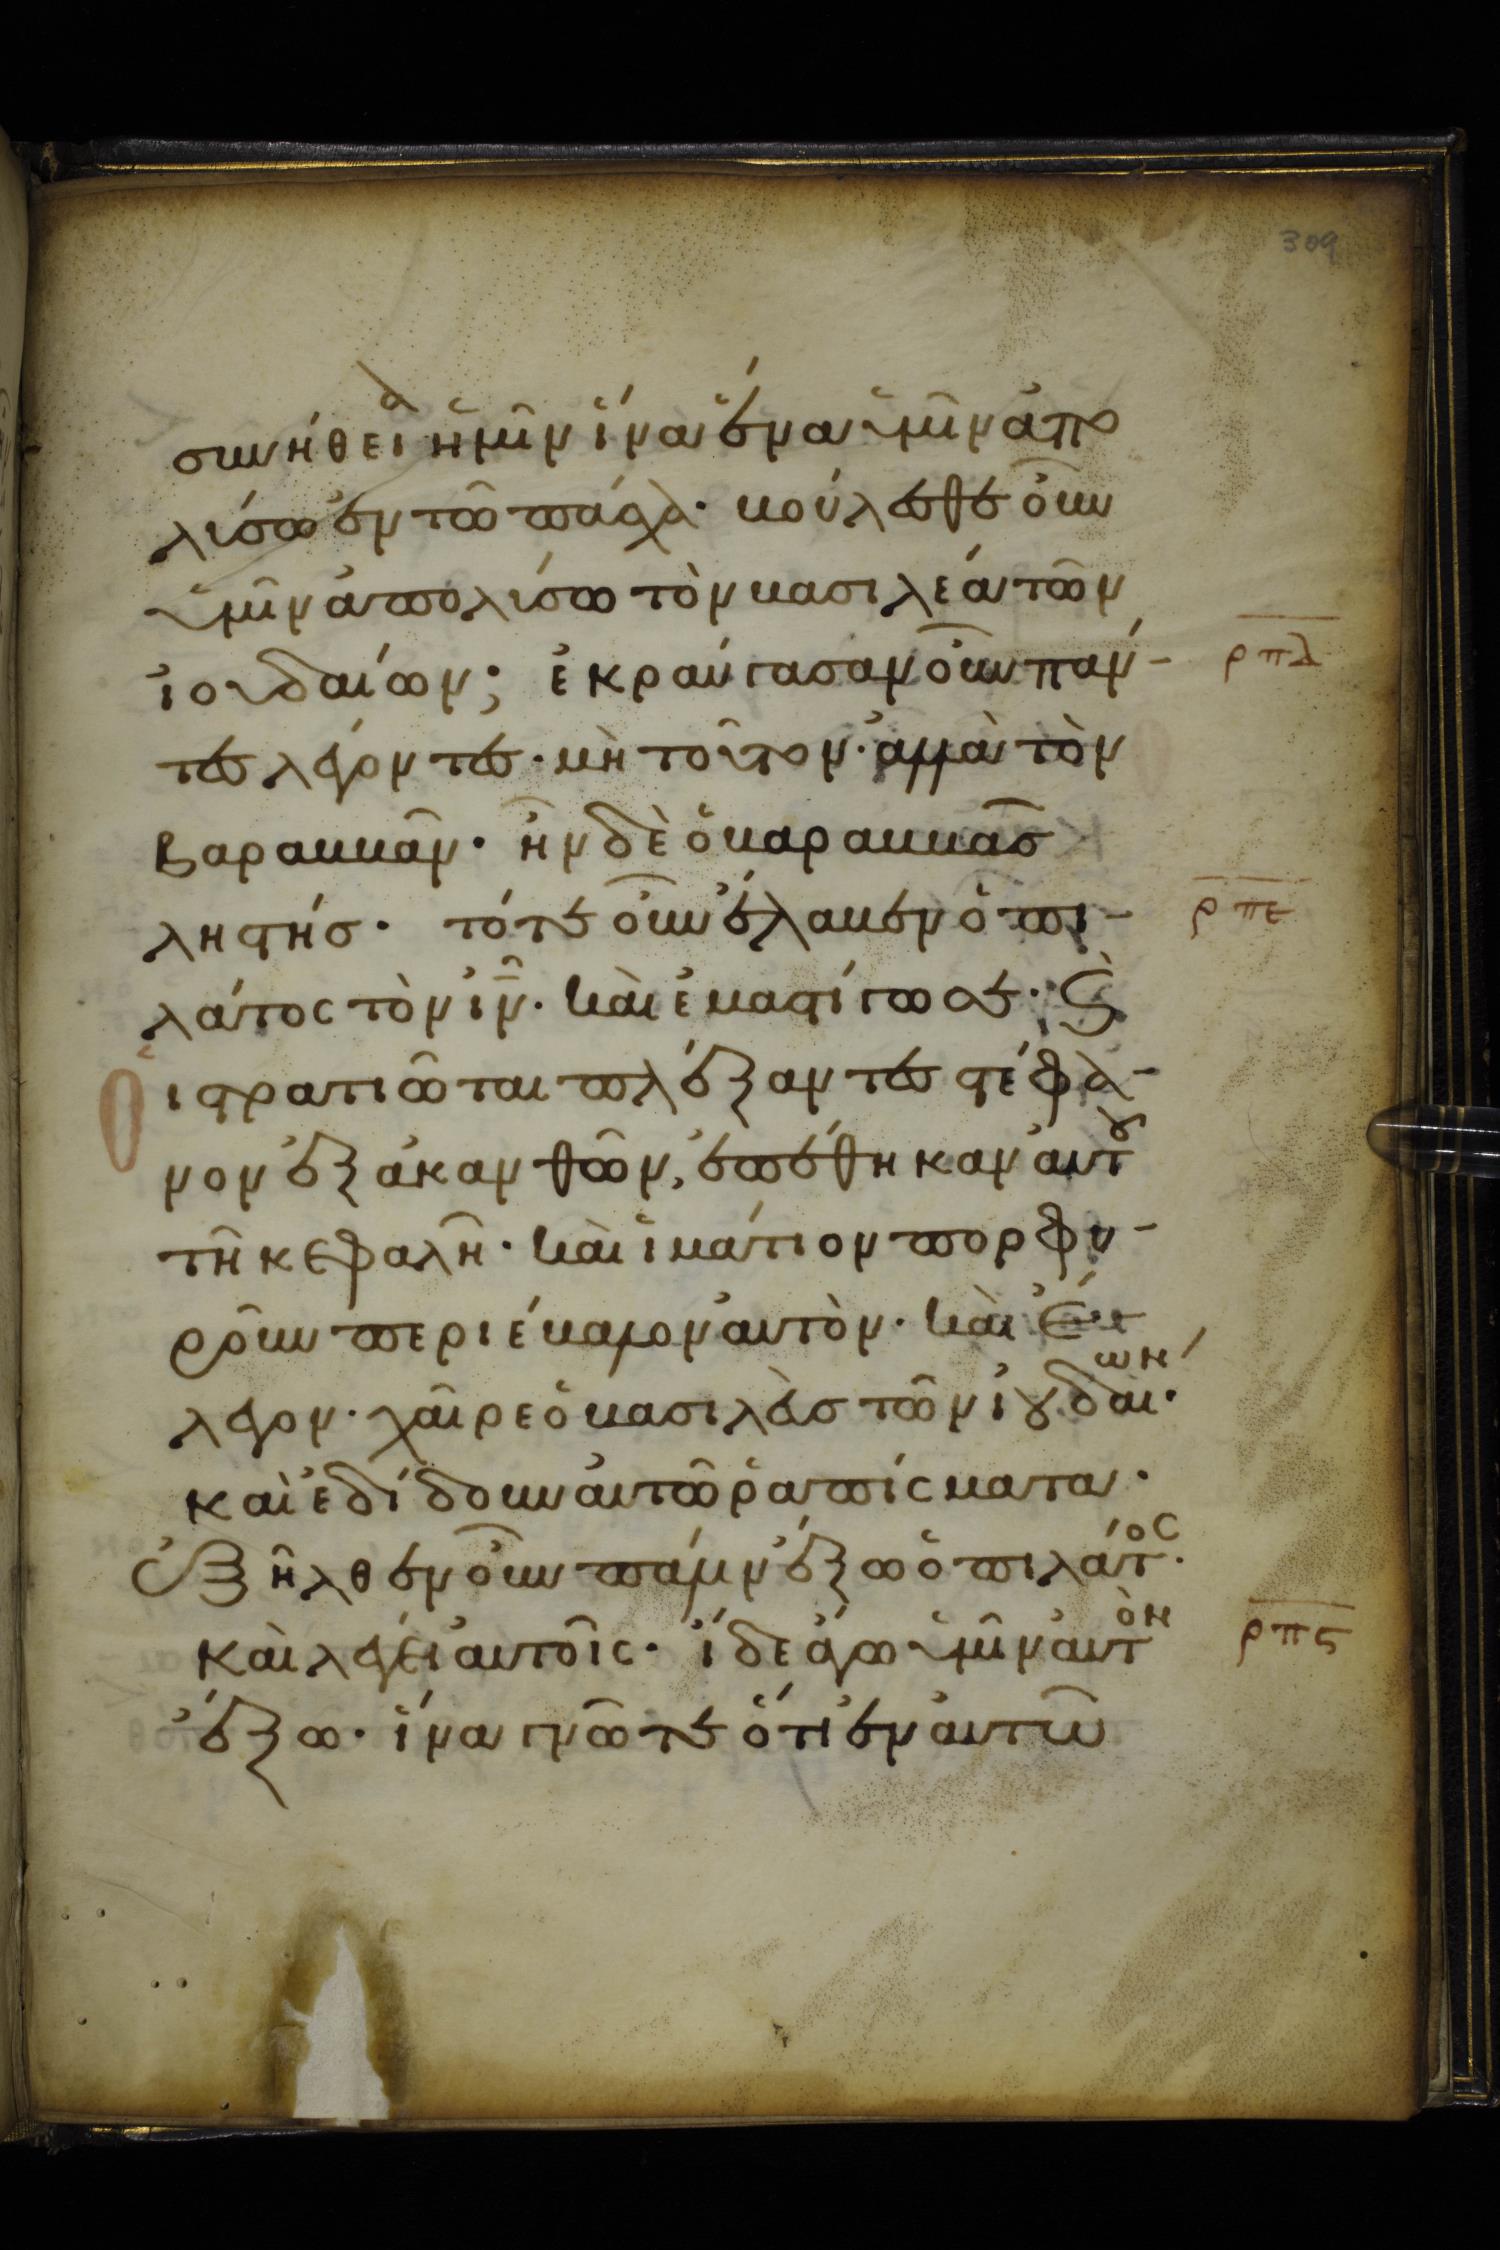 309
συνήθειὰ ἡμῖν ἵνα ἕνα ὑμῖν ἀπο
λύσω ἐν τῶ πάσχα· βούλεσθε οὖν
ὑμῖν ἀπολύσω τὸν βασιλέα τῶν
ἰουδαίων; ἐκραύγασαν οὖν πάν-
τες λέγοντες· μὴ τοῦτον· ἀλλὰ τὸν
βαραββᾶν· ἦν δὲ ὁ βαραββᾶσ
ληστήσ· τότε οὖν ἔλαβεν ὁ πι-
λάτος τὸν ιν̅· καὶ ἐμαστίγωσε· (καὶ)
οἱ στρατιῶται πλέξαντες στέφα-
νον ἐξ ἀκανθῶν, ἐπέθηκαν αὐτου
τῆ κεφαλῆ· καὶ ἱμάτιον πορφυ-
ροῦν περιέβαλον αὐτὸν· καὶ ἔ
λεγον· χαῖρε ὁ βασιλεὺσ τῶν ἰουδαίων·
καὶ ἐδίδουν αὐτῶ ῥαπίσματα·
ἐξῆλθεν οὖν πάλιν ἔξω ὁ πιλάτος·
καὶ λέγει αὐτοῖς· ἴδε ἄγω ὑμῖν αὐτὸν
ἔξω· ἵνα γνῶτε ὅτι ἐν αὐτῶ
ρπδ
ρπε
ρπς